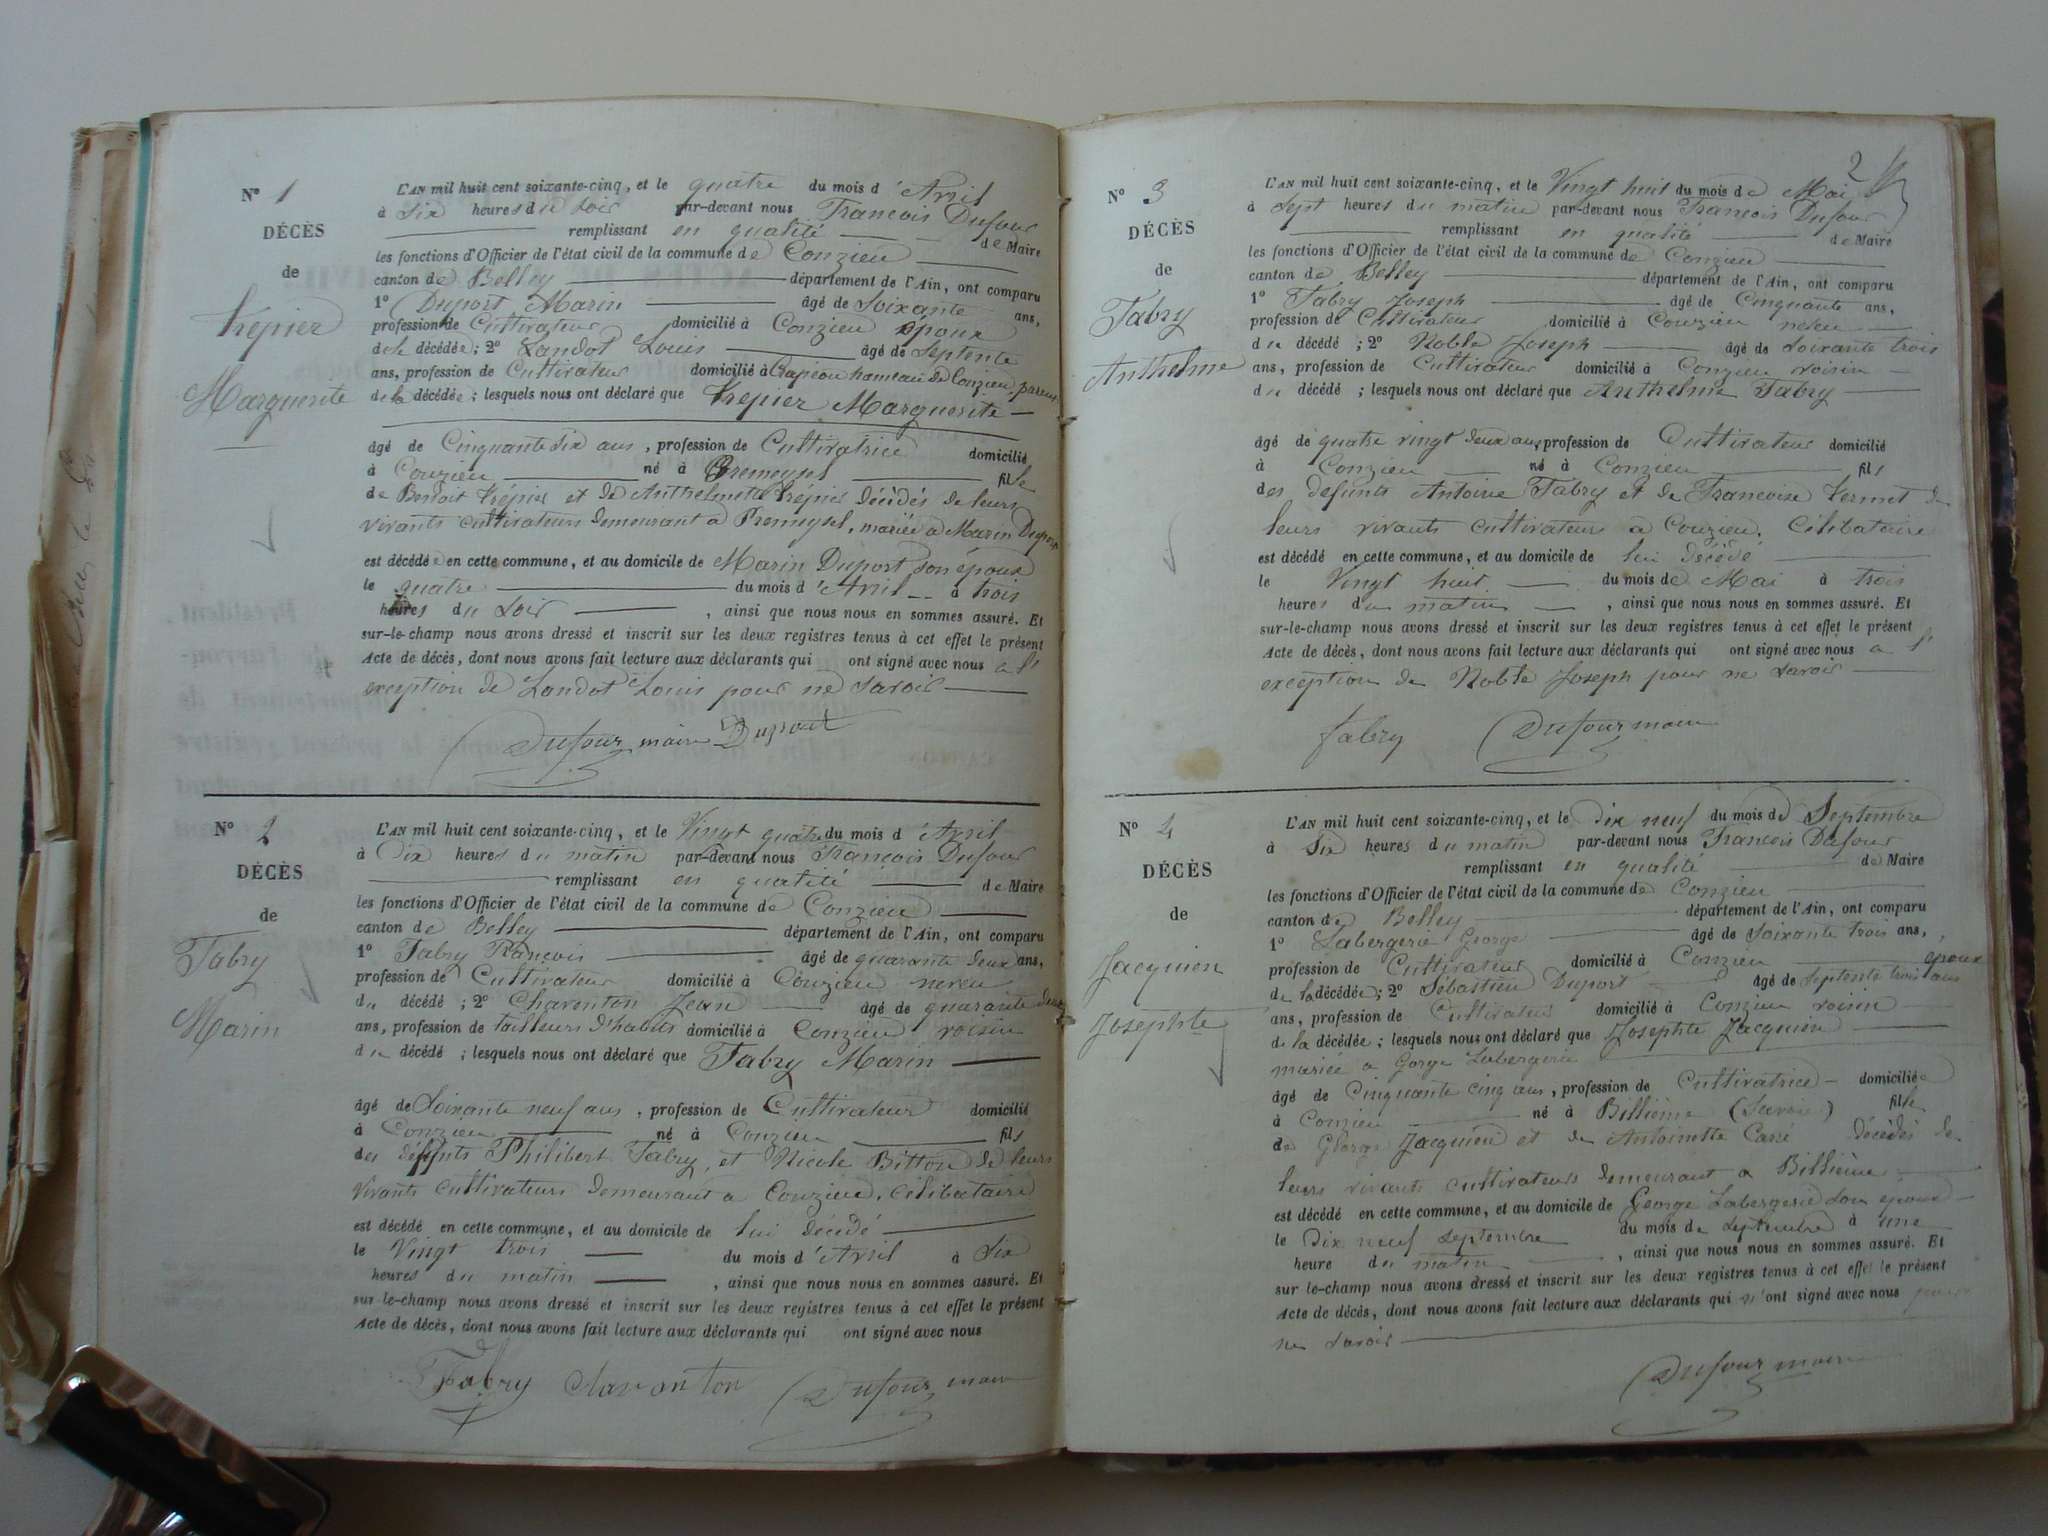 N° 1
DÉCÈS
de
Trépier
Marguerite
L'AN mil huit cent soixante-cinq, et le quatre du mois d'Avril
à six heures du soir par-devant nous Francois Dufour
remplissant en qualité de Maire
les fonctions d'Officier de l'état civil de la commune de Conzieu
canton de Belley département de l'Ain, ont comparu
1° Duport Marin âgé de Soixante ans,
profession de Cultivateur domicilié à Conzieu époux
de la décédée; 2° Landot Louis âgé de Septente
ans, profession de Cultivateur domicilié à Crapéou hameau de Conzieu, parent
de la décédée; lesquels nous ont déclaré que Trepier Marguerite
âgé de Cinquante six ans, profession de Cultivatrice domicilié
à Conzieu né à Premeysel fille
de Benoit Trépier et de Anthelmette Trépier décédés de leurs
vivants cultivateurs demeurant à Premeysel, mariée a Marin Duport
est décédée en cette commune, et au domicile de Marin Duport son époux
le quatre du mois d'Avril à trois
heures du soir, ainsi que nous nous en sommes assuré. Et
sur-le-champ nous avons dressé et inscrit sur les deux registres tenus à cet effet le présent
Acte de décès, dont nous avons fait lecture aux déclarants qui ont signé avec nous a l'
exception de Landot Louis pour ne savoir
Dufour maire Duport
N° 2
DÉCÈS
de
Fabry
Marin
L'AN mil huit cent soixante-cinq, et le Vingt quatre du mois d'Avril
à Dix heures du matin par-devant nous Francois Dufour
remplissant en qualité de Maire
les fonctions d'Officier de l'état civil de la commune de Conzieu
canton de Belley département de l'Ain, ont comparu
1° Fabry Francois âgé de quarante deux ans,
profession de Cultivateur domicilié à Conzieu neveu
du décédé; 2° Charenton Jean âgé de quarante deux
ans, profession de tailleurs d'habits domicilié à Conzieu voisin
du décédé; lesquels nous ont déclaré que Fabry Marin
âgé de Soixante neuf ans, profession de Cultivateur domicilié
à Conzieu né à Conzieu fils
des défunts Philibert Fabry, et Nicole Bitton de leurs
vivants cultivateurs demeurant a Conzieu, célibataire
est décédé en cette commune, et au domicile de lui décédé
le Vingt trois du mois d'Avril à Six
heures du matin, ainsi que nous nous en sommes assuré. Et
sur le-champ nous avons dressé et inscrit sur les deux registres tenus à cet effet le présent
Acte de décès, dont nous avons fait lecture aux déclarants qui ont signé avec nous
Fabry Dufour maire
2
N° 3
DÉCÈS
de
Fabry
Anthelme
L'AN mil huit cent soixante-cinq, et le Vingt huit du mois de Mai
à sept heures du matin par-devant nous Francois Dufour
remplissant en qualité de Maire
les fonctions d'Officier de l'état civil de la commune de Conzieu
canton de Belley département de l'Ain, ont comparu
1° Fabry Joseph âgé de Cinquante ans,
profession de Cultivateur domicilié à Conzieu neveu
du décédé; 2° Noble Joseph âgé de Soixante trois
ans, profession de Cultivateur domicilié à Conzieu voisin
du décédé; lesquels nous ont déclaré que Anthelme Fabry
âgé de quatre vingt deux ans, profession de Cultivateur domicilié
à Conzieu né à Conzieu fils
des défunts Antoine Fabry et de Francoise Vermet de
leurs vivants cultivateurs a Conzieu. Célibataire
est décédé en cette commune, et au domicile de lui décédé
le Vingt huit du mois de Mai à trois
heures du matin, ainsi que nous nous en sommes assuré. Et
sur-le-champ nous avons dressé et inscrit sur les deux registres tenus à cet effet le présent
Acte de décès, dont nous avons fait lecture aux déclarants qui ont signé avec nous a l'
exception de Noble Joseph pour ne savoir
fabry Dufour maire
N° 4
DÉCÈS
de
Jacquien
Josephte
L'AN mil huit cent soixante-cinq, et le dix neuf du mois de Septembre
à Six heures du matin par-devant nous Francois Dufour
remplissant en qualité de Maire
les fonctions d'Officier de l'état civil de la commune de Conzieu
canton de Belley département de l'Ain, ont comparu
1° Labergerie George âgé de Soixante trois ans,
profession de Cultivateur domicilié à Conzieu époux
de la décédée; 2° Sébastien Duport âgé de septente trois ans
ans, profession de Cultivateur domicilié à Conzieu voisin
de la décédée; lesquels nous ont déclaré que Josephte Jacquien
mariée a Gorge Labergerie
âgé de Cinquante cinq ans, profession de Cultivatrice domiciliée
à Conzieu né à Billième (Savoie) fille
de George Jacquien et de Antoinette Carré décédés de
leurs vivants cultivateurs demeurant a Billième
est décédé en cette commune, et au domicile de George Labergerie son époux
le Dix neuf septembre du mois de septembre à une
heure du matin, ainsi que nous nous en sommes assuré. Et
sur le-champ nous avons dressé et inscrit sur les deux registres tenus à cet effet le présent
Acte de décès, dont nous avons fait lecture aux déclarants qui n'ont signé avec nous pour
ne savoir
Dufour maire